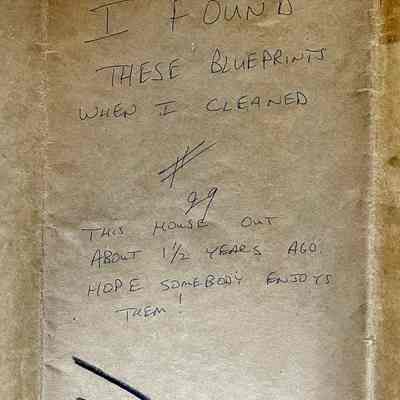 I FOUND
THESE BLUEPRINTS
WHEN I CLEANED
#
29
THIS HOUSE OUT
ABOUT 1½ YEARS AGO.
HOPE SOMEBODY ENJOYS
THEM!